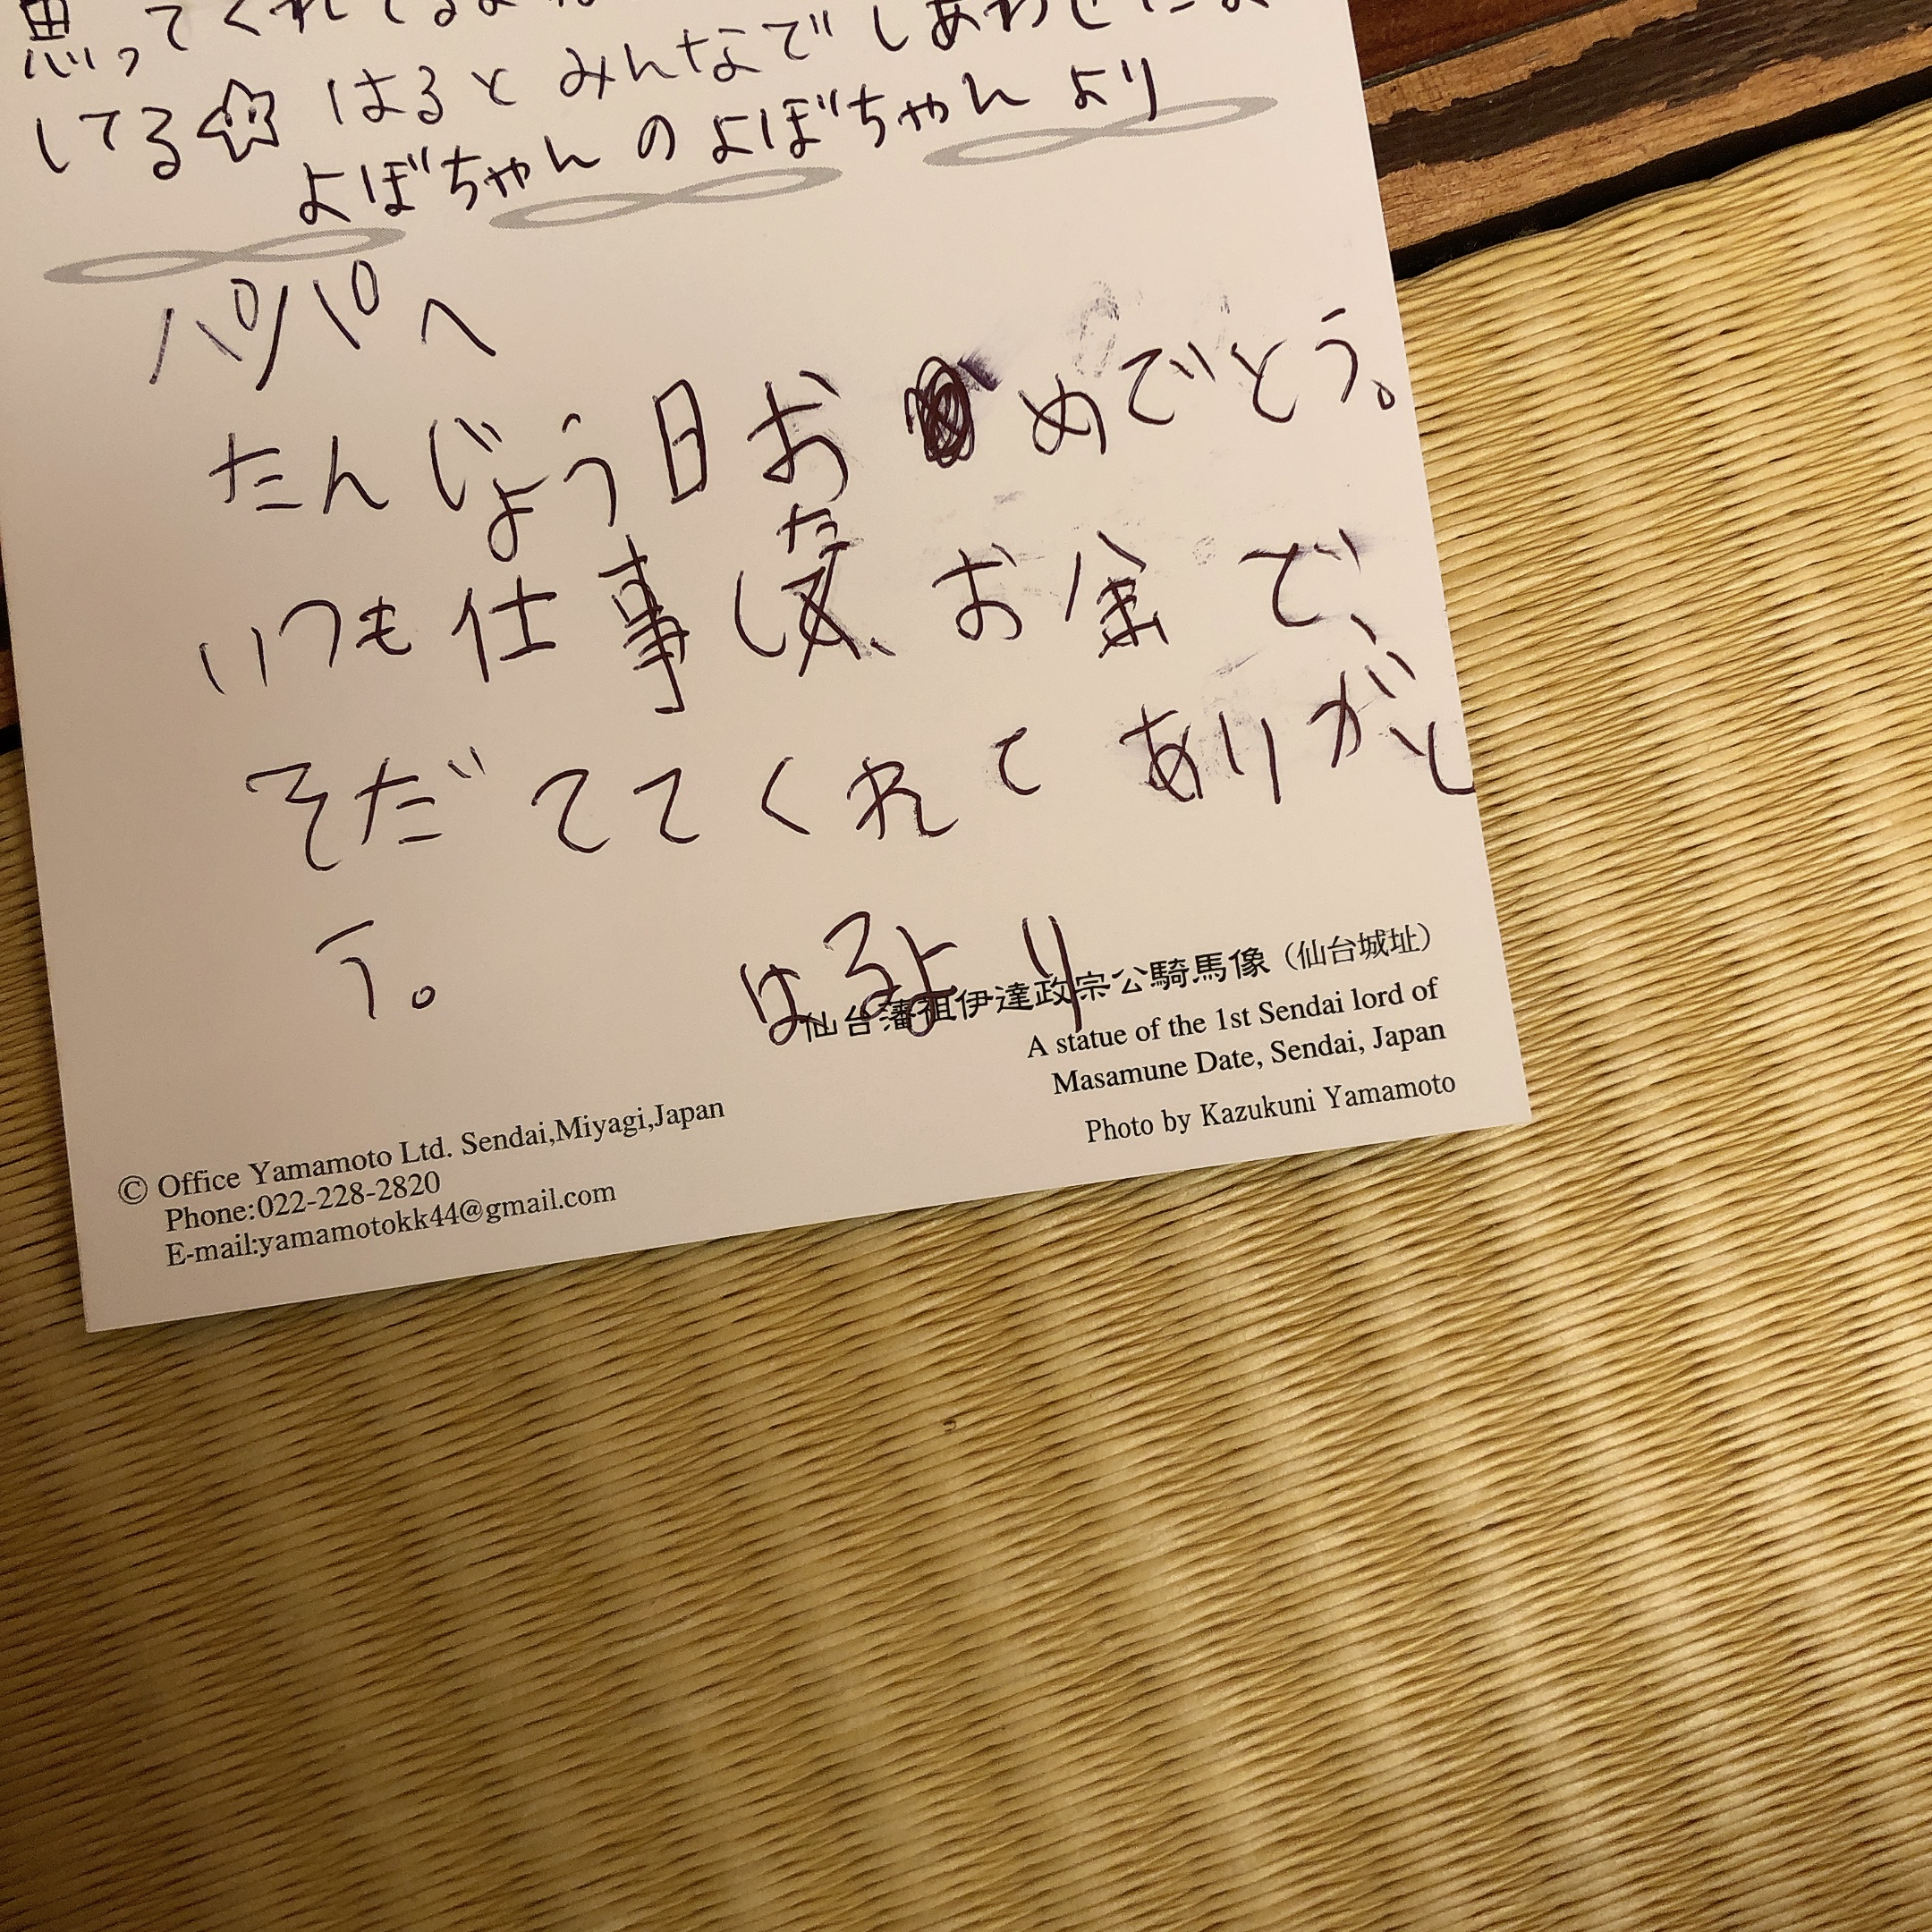 思ってくれてるよね
してる☆ はるとみんなでしあわせだよ
よぼちゃんのよぼちゃんより
パパへ
たんじょう日おめでとう。
いつも仕事した、お金で、
そだててくれてありがと
う。 はるより
仙台藩祖伊達政宗公騎馬像（仙台城址）
A statue of the 1st Sendai lord of
Masamune Date, Sendai, Japan
Photo by Kazukuni Yamamoto
© Office Yamamoto Ltd. Sendai,Miyagi,Japan
Phone:022-228-2820
E-mail:yamamotokk44@gmail.com